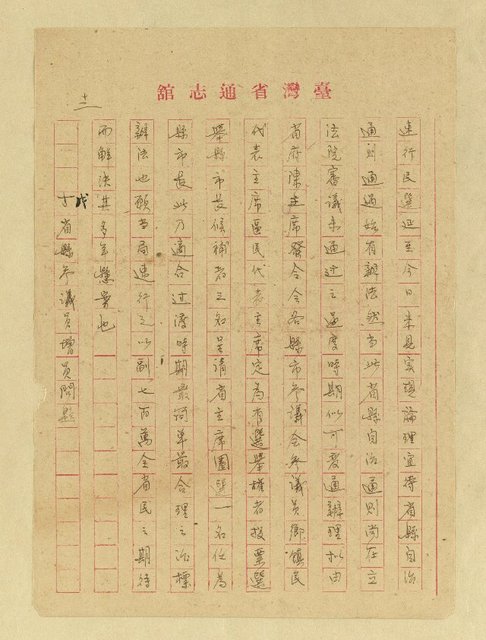 臺灣省通志館
速行民選延至今日未見實現論理宜待省縣自治
通則通過始有辦法然當此省縣自治通則尚在立
法院審議未通過之過渡時期似可變通辦理擬由
省府陳主席發令全各縣市參議會參議員鄉鎮民
代表主席區民代表主席定為有選舉權者投票選
舉縣市長候補者三名呈請省主席圈選一名任為
縣市長此乃適合過渡時期最簡單最合理之治標
辦法也願當局速行之以副七百萬全省民之期待
而解決其多年懸案也
戊省縣參議員增員問題
十一